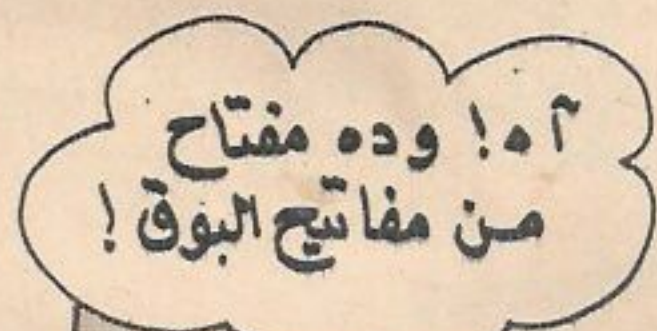 آه! وده مفتاح
من مفاتيح البوق!